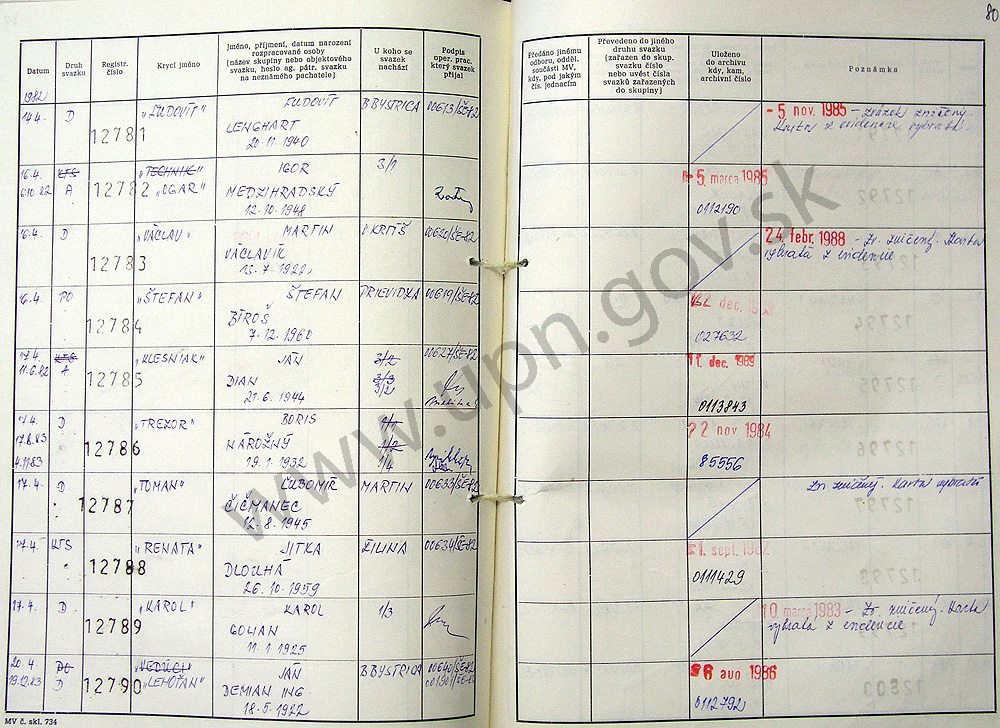 80
Datum
Druh svazku
Registr. číslo
Krycí jméno
Jméno, příjmení, datum narození
rozpracované osoby
(název skupiny nebo objektového
svazku, heslo ag. pátr. svazku
na neznámého pachatele)
U koho se
svazek
nachází
Podpis
oper. prac.
který svazek
přijal
Předáno jinému
odboru, odděl.
součásti MV,
kdy, pod jakým
čís. jednacím
Převedeno do jiného
druhu svazku
(zařazen do skup.
svazku číslo
nebo uvést čísla
svazků zařazených
do skupiny)
Uloženo
do archivu
kdy, kam,
archivní číslo
Poznámka
1982
14.4. D 12781 "ĽUDOVÍT" ĽUDOVÍT B BYSTRICA 00613/ŠE-82
LENGHART
20.11.1940
- 5 nov. 1985 - zväzok zničený.
Karta z evidencie vybratá.
16.4. KTS 12782 "TECHNIK" IGOR 3/1
6.10.82 A "UGAR" MEDZIHRADSKÝ
12.10.1948
5. marca 1985
0112190
16.4. D 12783 "VÁCLAV" MARTIN V. KRTÍŠ 00620/ŠE-82
VÁCLAVIK
13.7.1922
24. febr. 1988 - Zv. zničený. Karta
vybratá z evidencie
16.4. PO 12784 "ŠTEFAN" ŠTEFAN PRIEVIDZA 00619/ŠE-82
BÍROŠ
7.12.1960
027632
17.4. KTS 12785 "KLESNIAK" JÁN 3/2 00627/ŠE-82
11.6.82 A DIAN 3/3
21.6.1944 3/2
11. dec. 1989
0113843
17.4. D 12786 "TREZOR" BORIS 1/1
17.8.83 NÁROŽNÝ 1/2
4.11.83 19.1.1932 1/4
22 nov 1984
85556
17.4. D 12787 "TOMAN" ĽUBOMÍR MARTIN 00633/ŠE-82
ČIČMANEC
12.8.1945
Zv. zničený. Karta vybratá
17.4. KTS 12788 "RENATA" JITKA ŽILINA 00634/ŠE-82
DLOUHÁ
26.10.1959
1. sept. 1982
0111429
17.4. D 12789 "KAROL" KAROL 1/3
GOLIAN
11.1.1925
10 marca 1983 - Zv. zničený. Karta
vybratá z evidencie
20.4. PO 12790 "VEDÚCI" JÁN B BYSTRICA 00640/ŠE-82
19.12.83 D "LEMOŤAN" DEMIAN ING.
18.5.1922
6 aug 1986
0112792
MV č. skl. 734
www.upn.gov.sk